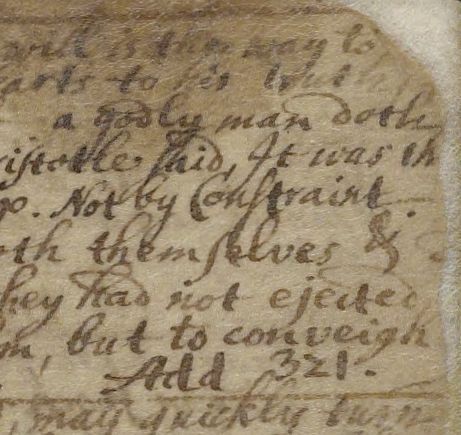 will is the way to
arts to his truth
a godly man doth
ristotle said, It was th
e. Not by Constraint
oth themselves &
hey had not ejected
m, but to conveigh
Add 321.
, may quickly turn